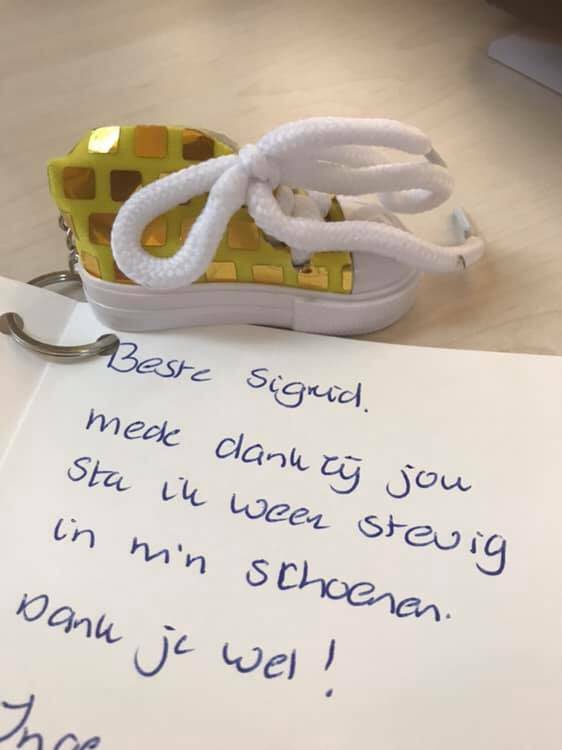 Beste Sigrid.
mede dankzij jou
sta ik weer stevig
in m'n schoenen.
Dank je wel!
Inge